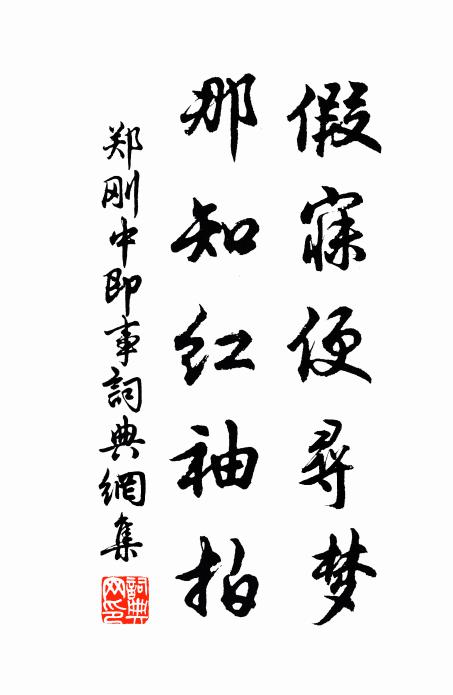 假寐便寻梦
那知红袖拍
郑刚中即事詞典網集
詞典网印